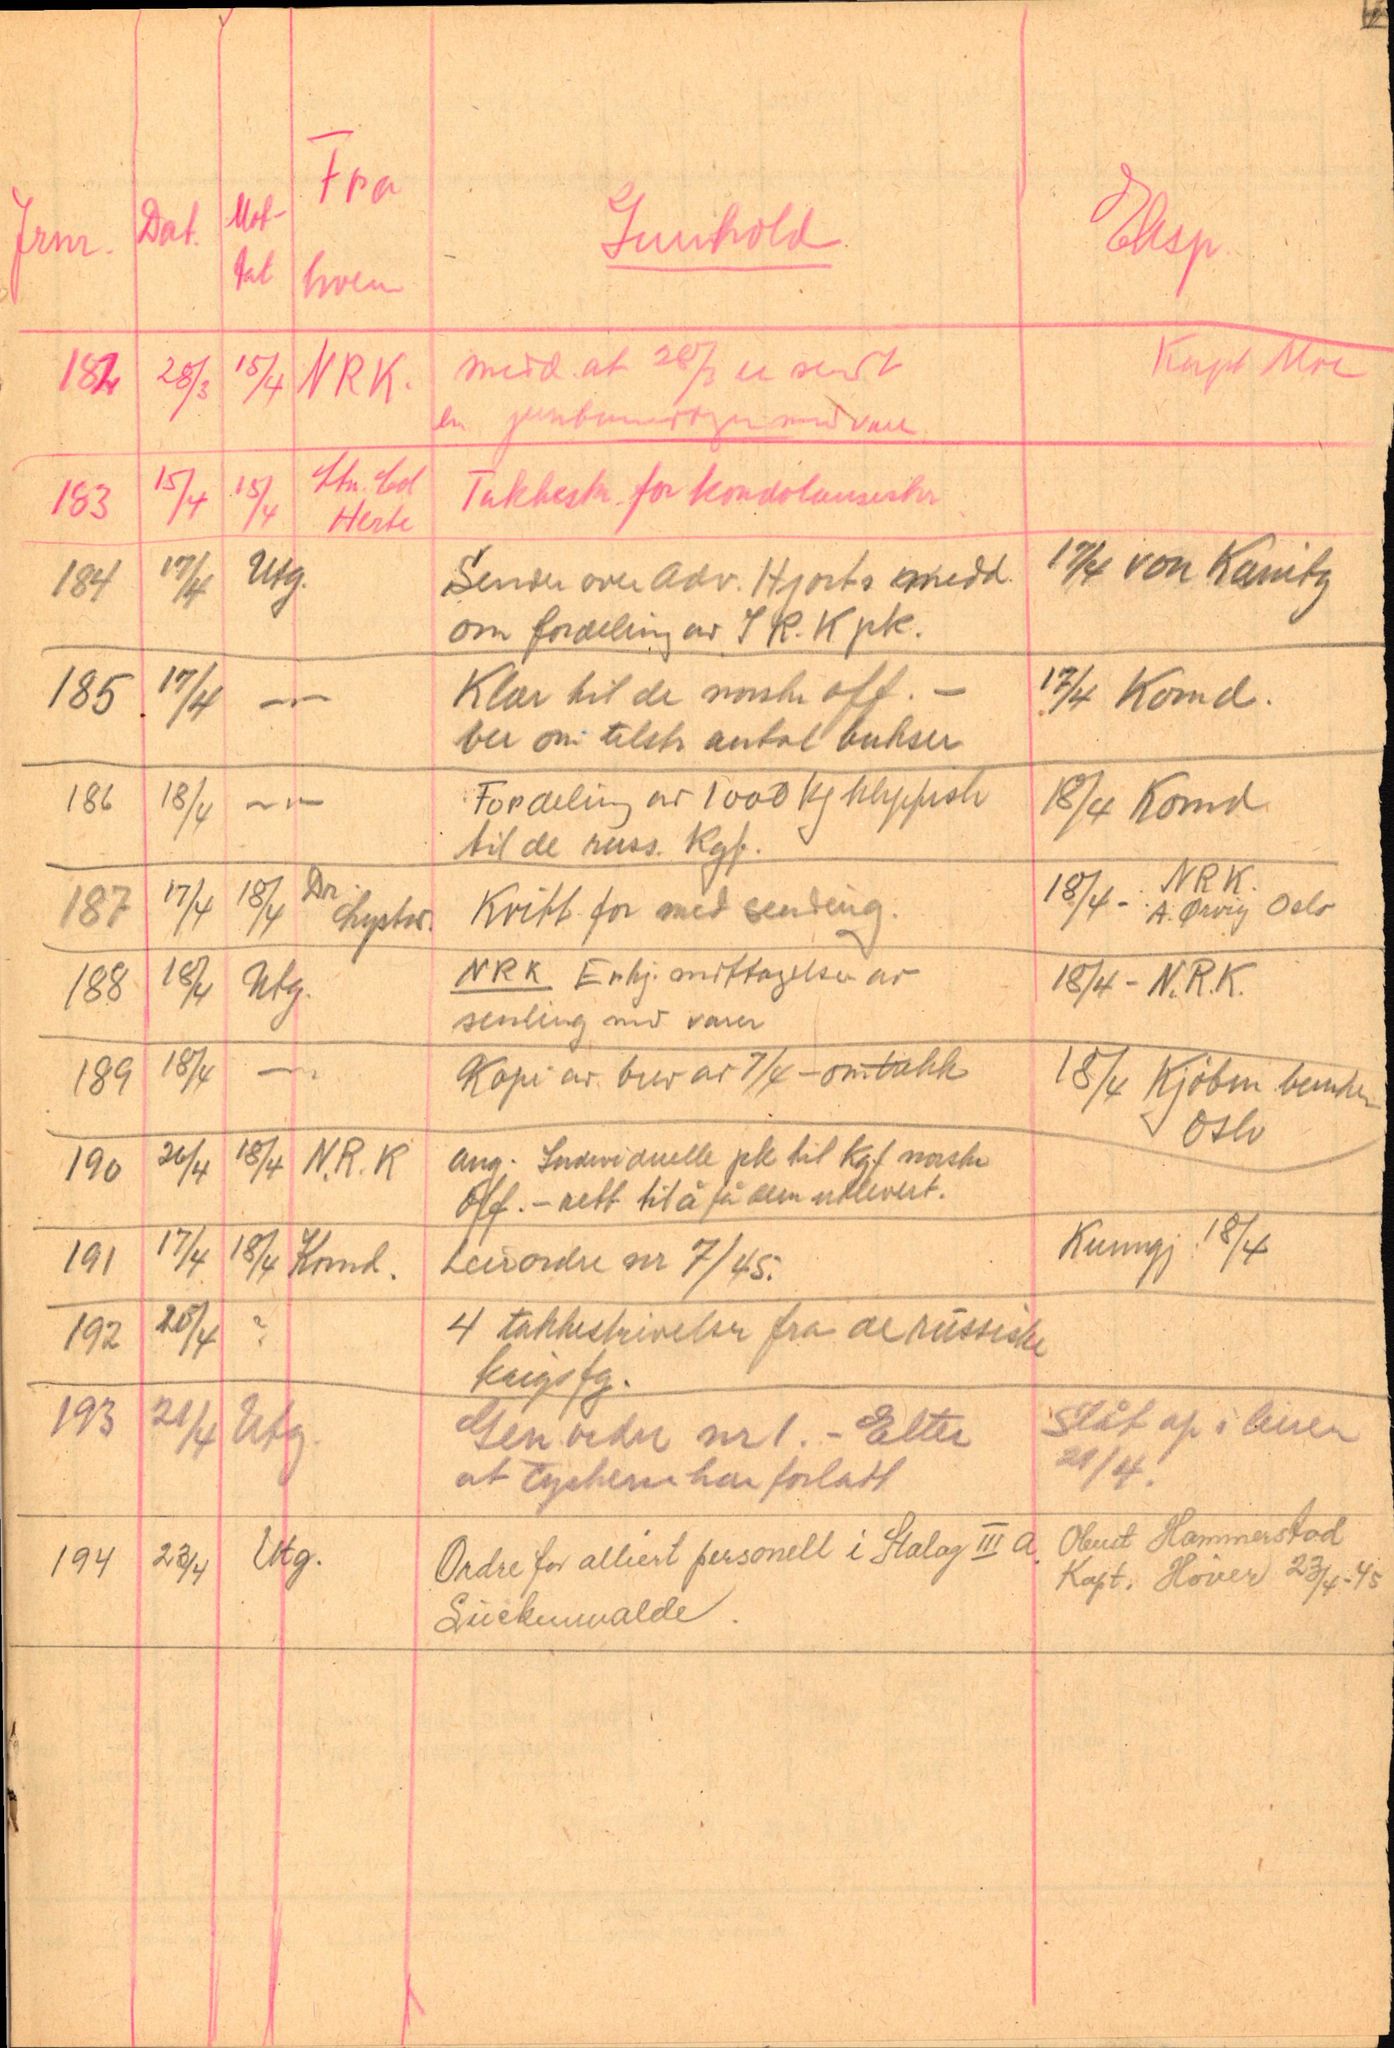 Jrnr. Dat. Mot-tat Fra hvem Innhold Eksp.
182 28/3 15/4 NRK. medd. at 28/3 er sendt Kapt Moe
en jernbanevogn med varer
183 15/4 15/4 Takkeskr. for kondolanseskr
Herte
184 17/4 Utg. Sender over Adv. Hjorts medd. 17/4 von Kanitz
om fordeling av I R. K pk.
185 17/4 —"— Klær til de norske off. – 17/4 Komd.
ber om tilstr antal bukser
186 18/4 —"— Fordeling av 1000 kg klippfisk 18/4 Komd
til de russ. Kgf.
187 17/4 18/4 Dr. Kvitt. for med sending. 18/4 – NRK.
A. Ørvig Oslo
188 18/4 Utg. NRK Erkj. mottagelse av 18/4 – N.R.K.
sending med varer
189 18/4 —"— Kopi av brev av 7/4 – om takk 18/4 Kjøbm
Oslo
190 26/4 18/4 N.R.K ang. Individuelle pk til Kgf norske
off. – rett til å få dem utlevert.
191 17/4 18/4 Komd. Leirordre nr 7/45. Kunngj. 18/4
192 20/4 ? 4 takkeskrivelser fra de russiske
krigsfg.
193 21/4 Utg. Gen ordre nr 1. – Etter Slåt op i leiren
at tyskerne har forlatt 21/4.
194 23/4 Utg. Ordre for alliert personell i Stalag III A. Oberst Hammerstad
Luckenwalde. Kapt. Höver 23/4-45